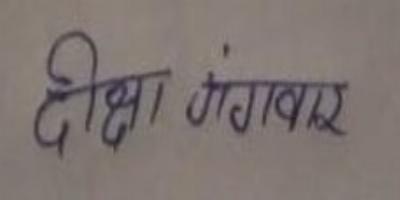 दीक्षा गंगवार